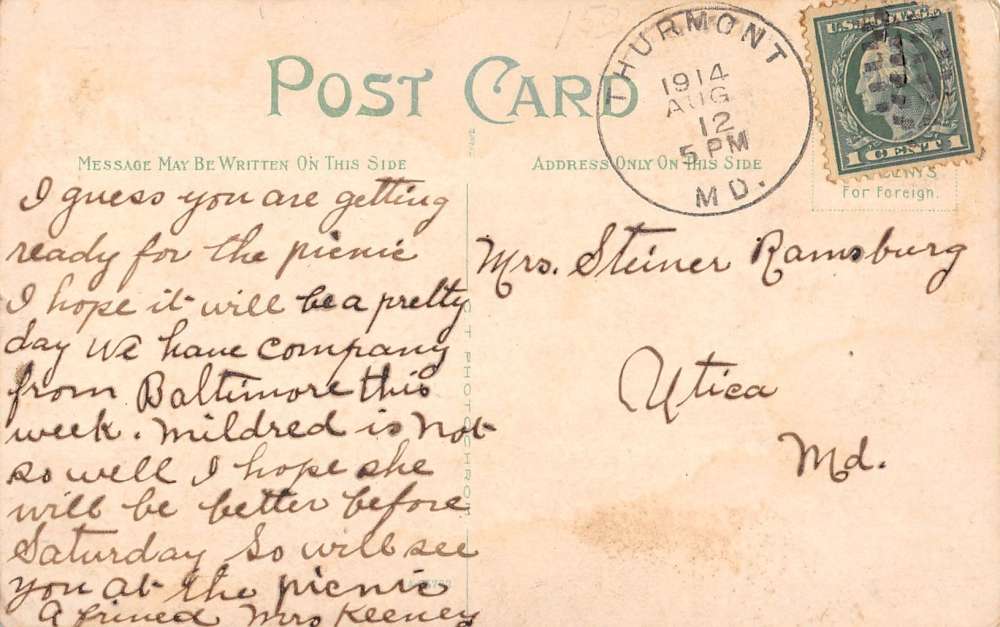 POST CARD
THURMONT
1914
AUG
12
5 PM
MD.
U.S. POSTAGE
1 CENT 1
MESSAGE MAY BE WRITTEN ON THIS SIDE
ADDRESS ONLY ON THIS SIDE
For Foreign.
I guess you are getting
ready for the picnic
I hope it will be a pretty
day we have company
from Baltimore this
week. Mildred is not
so well I hope she
will be better before
Saturday So will see
you at the picnic
A frined Mrs Keeney
Mrs. Steiner Ramsburg
Utica
Md.